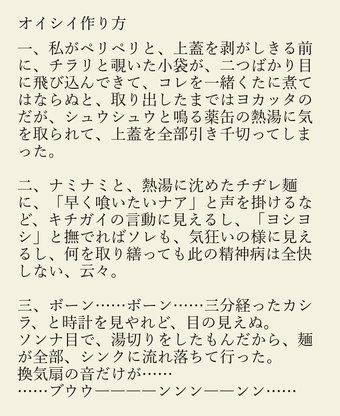 オイシイ作り方
一、私がペリペリと、上蓋を剥がしきる前
に、チラリと覗いた小袋が、二つばかり目
に飛び込んできて、コレを一緒くたに煮て
はならぬと、取り出したまではヨカッタの
だが、シュウシュウと鳴る薬缶の熱湯に気
を取られて、上蓋を全部引き千切ってしま
った。
二、ナミナミと、熱湯に沈めたチヂレ麺
に、「早く喰いたいナア」と声を掛けるな
ど、キチガイの言動に見えるし、「ヨシヨ
シ」と撫でればソレも、気狂いの様に見え
るし、何を取り繕っても此の精神病は全快
しない、云々。
三、ボーン……ボーン……三分経ったカシ
ラ、と時計を見やれど、目の見えぬ。
ソンナ目で、湯切りをしたもんだから、麺
が全部、シンクに流れ落ちて行った。
換気扇の音だけが……
……ブウウ――――ンンン――ンン……